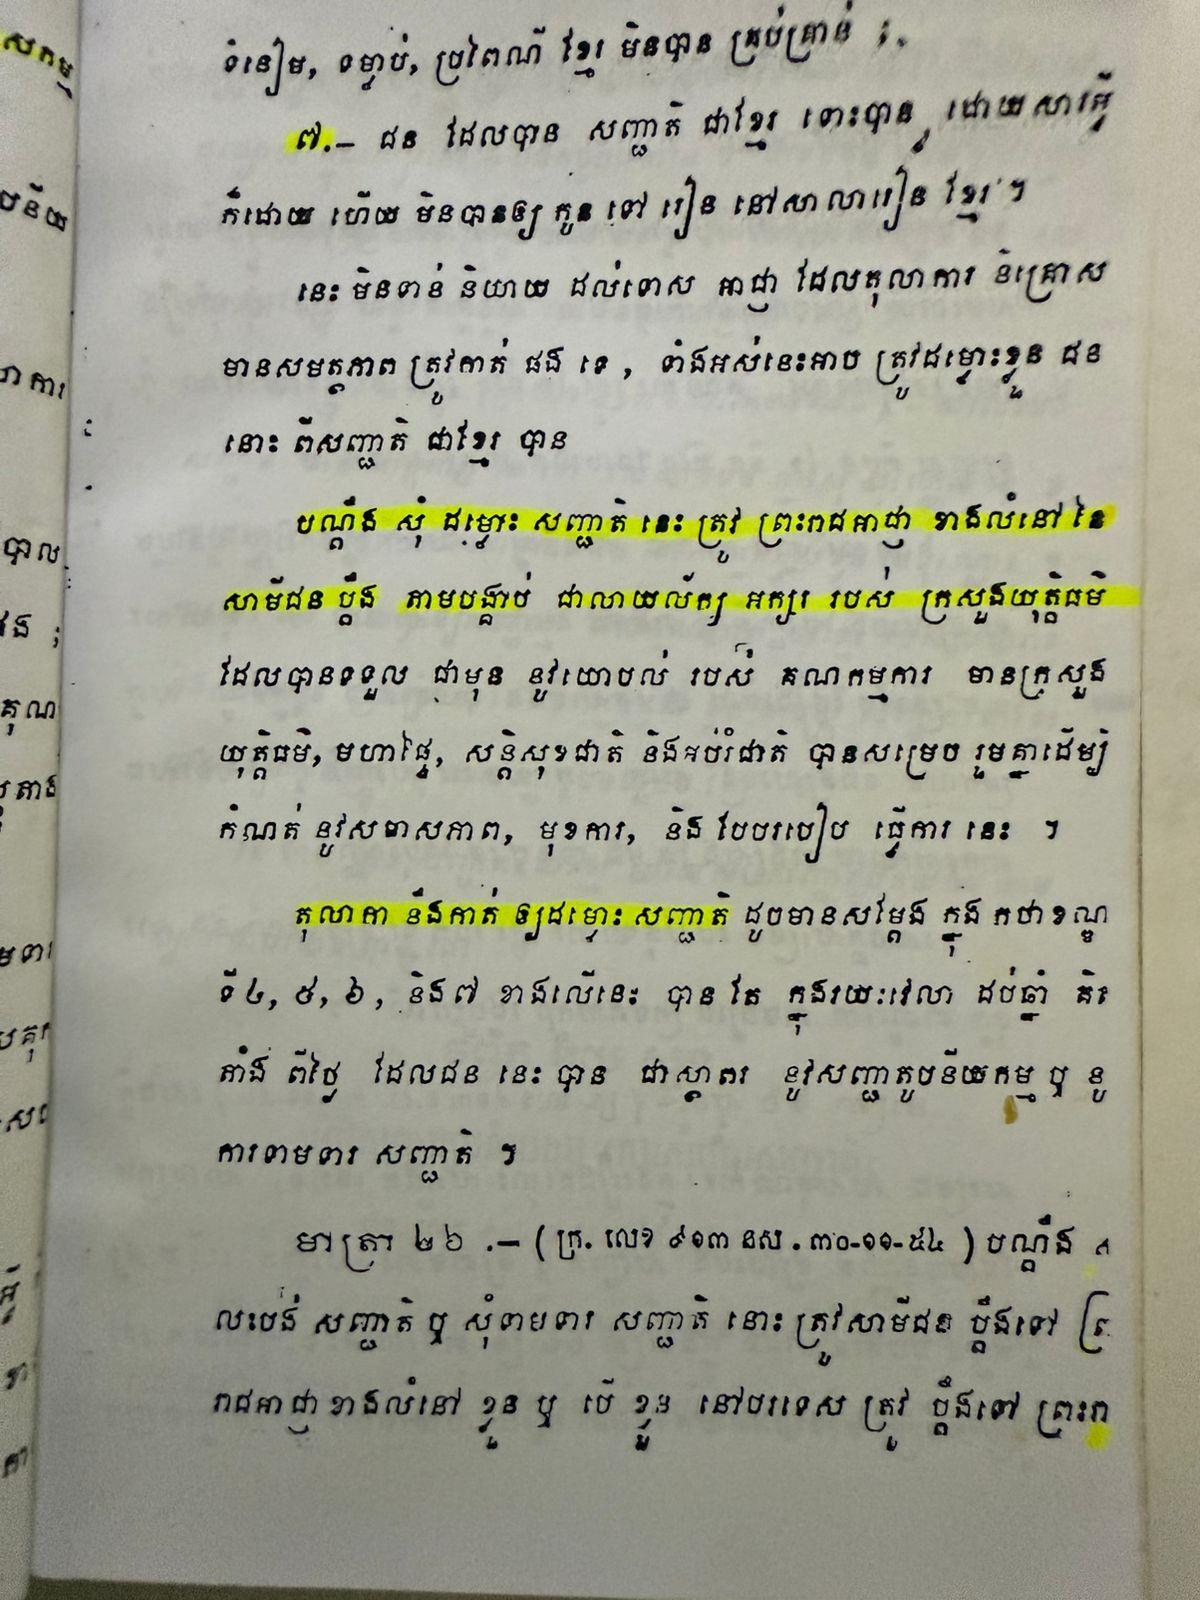 ទំនៀម, ទម្លាប់, ប្រពៃណី ខ្មែរ មិនបាន គ្រប់គ្រាន់ ;
៧.– ជន ដែលបាន សញ្ជាតិ ជាខ្មែរ ទោះបាន ដោយសារអ្វី
ក៏ដោយ ហើយ មិនបានឲ្យ កូន ទៅ រៀន នៅសាលារៀន ខ្មែរ ។
នេះ មិនទាន់ និយាយ ដល់ទោស អាជ្ញា ដែលតុលាការ និគ្រោស
មានសមត្ថភាព ត្រូវកាត់ ផង ទេ , ទាំងអស់នេះអាច ត្រូវដម្លោះខ្លួន ជន
នោះ ពីសញ្ជាតិ ជាខ្មែរ បាន
បណ្ដឹង សុំ ដម្លោះ សញ្ជាតិ នេះ ត្រូវ ព្រះរាជអាជ្ញា ខាងលំនៅ នៃ
សាមីជន ប្ដឹង តាមបង្គាប់ ជាលាយល័ក្ខ អក្សរ របស់ ក្រសួងយុត្តិធម៌
ដែលបានទទួល ជាមុន នូវយោបល់ របស់ គណកម្មការ មានក្រសួង
យុត្តិធម៌, មហាផ្ទៃ, សន្តិសុខជាតិ និងអប់រំជាតិ បានសម្រេច រួមគ្នាដើម្បី
កំណត់ នូវសមាសភាព, មុខការ, និង បែបរបៀប ធ្វើការ នេះ ។
តុលាការ នឹងកាត់ ឲ្យដម្លោះ សញ្ជាតិ ដូចមានសម្ដែង ក្នុង កថាខណ្ឌ
ទី៤, ៥, ៦, និង៧ ខាងលើនេះ បាន តែ ក្នុងរយៈវេលា ដប់ឆ្នាំ គិត
តាំង ពីថ្ងៃ ដែលជន នេះ បាន ជាស្ថាពរ នូវសញ្ជាតូបនីយកម្ម ឬ នូ
ការទាមទារ សញ្ជាតិ ។
មាត្រា ២៦ .– ( ក្រ. លេខ ៩១៣ នស . ៣០-១១-៥៤ ) បណ្ដឹង
លះបង់ សញ្ជាតិ ឬ សុំទាមទារ សញ្ជាតិ នោះ ត្រូវសាមីជន ប្ដឹងទៅ
រាជអាជ្ញាខាងលំនៅ ខ្លួន ឬ បើ ខ្លួន នៅបរទេស ត្រូវ ប្ដឹងទៅ ព្រះរា